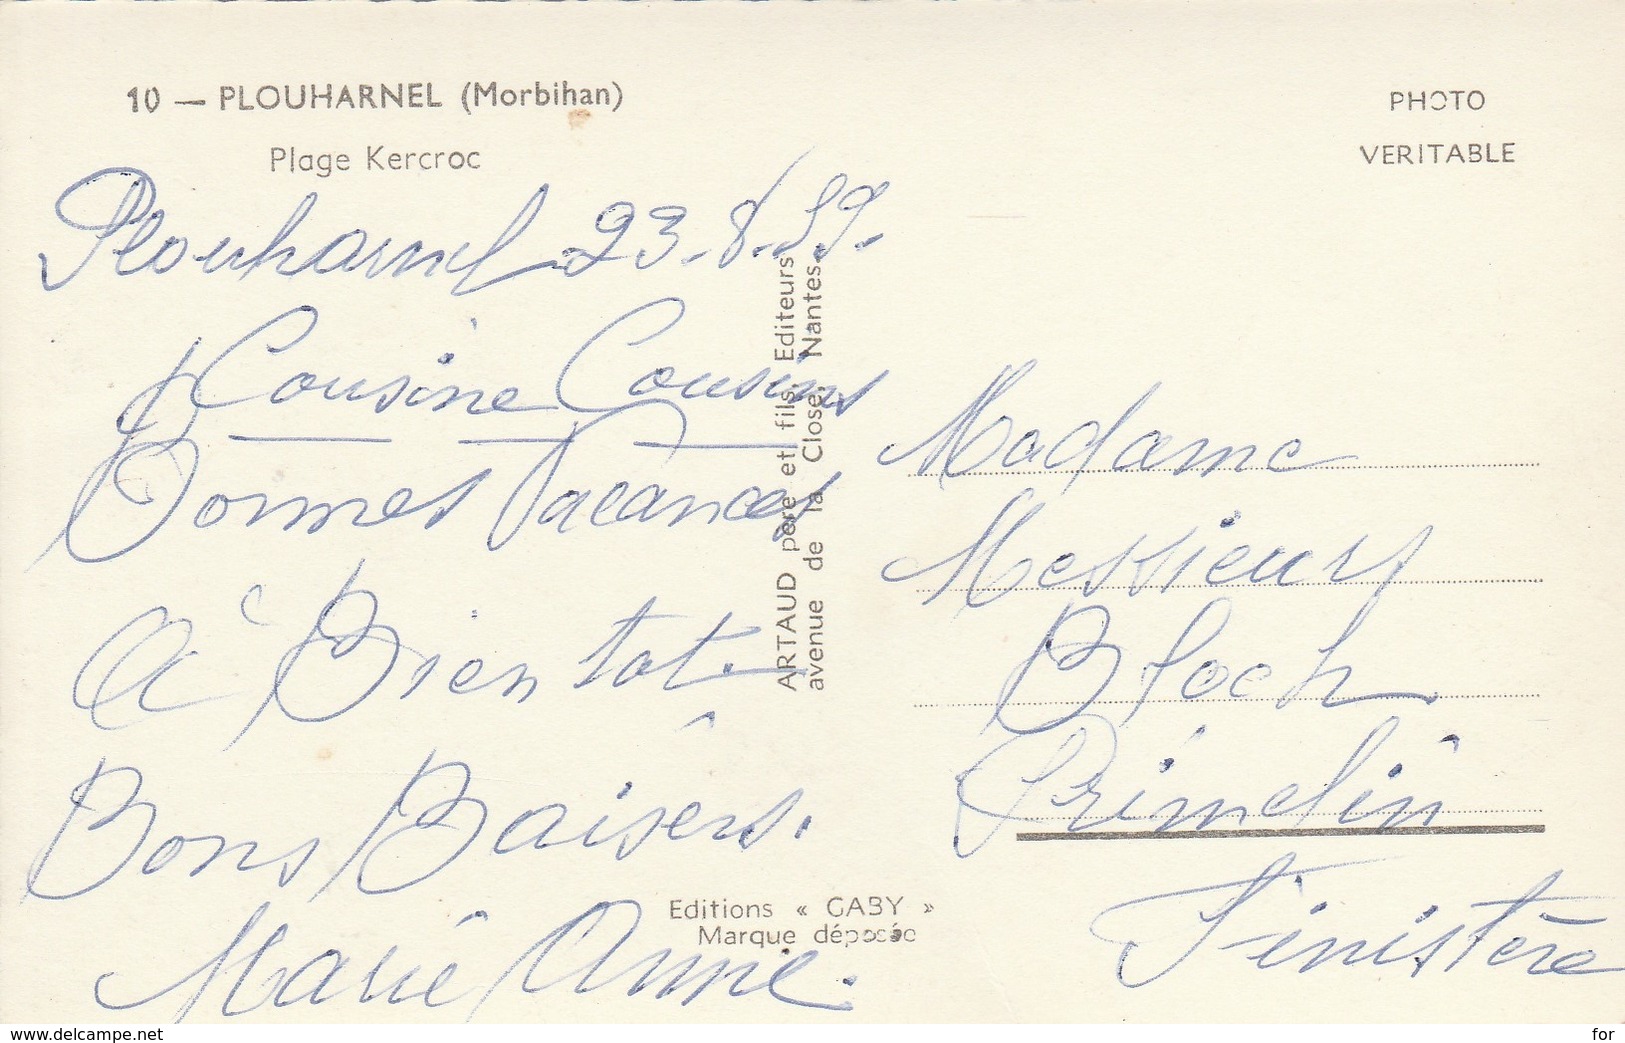 10 — PLOUHARNEL (Morbihan)
Plage Kercroc
Plouharnel 23-8-59-
Cousine Cousins
Bonnes Vacances
A Bientot.
Bons Baisers.
Marie Anne.
ARTAUD père et fils, Editeurs
avenue de la Close, Nantes
Editions « GABY »
Marque déposée
PHOTO
VERITABLE
Madame
Messieurs
Bloch
Primelin
Finistère
www.delcampe.net
for